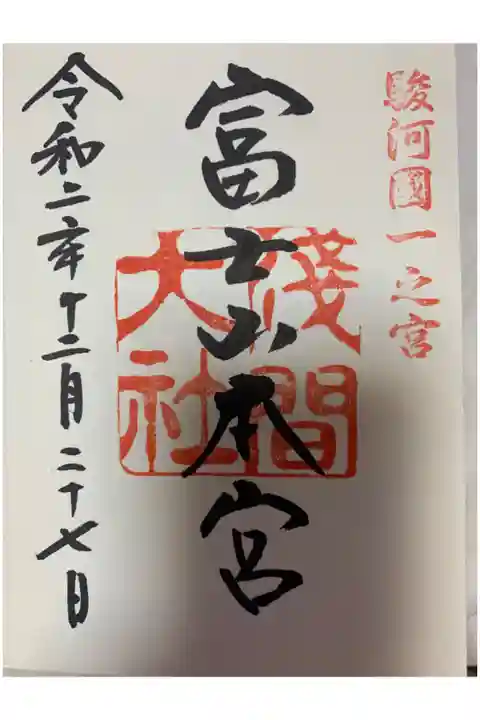 駿河國一之宮
富士山本宮
淺間
大社
令和二年十二月二十七日